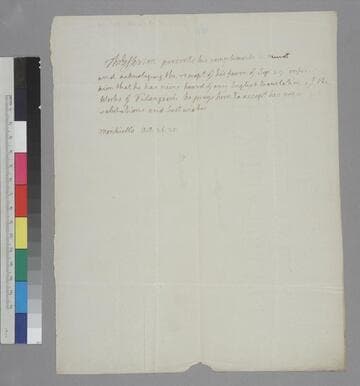 Th Jefferson presents his compliments
and acknoleges the receipt of his favor of Sep. 29
him that he has never heard of any English translation of the
Works of Filangieri. he prays him to accept his
salutations and best wishes
Monticello Oct. 26. 20.